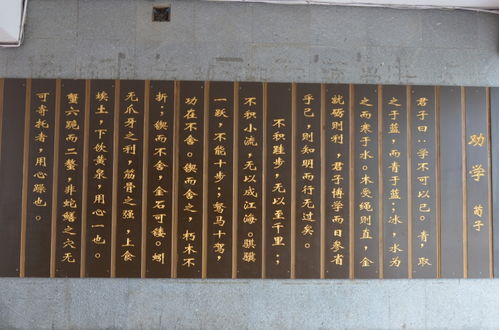 劝学
荀子
君子曰：学不可以已。青，取
之于蓝，而青于蓝；冰，水为
之而寒于水。木受绳则直，金
就砺则利，君子博学而日参省
乎己，则知明而行无过矣。
不积跬步，无以至千里；
不积小流，无以成江海。骐骥
一跃，不能十步；驽马十驾，
功在不舍。锲而舍之，朽木不
折；锲而不舍，金石可镂。蚓
无爪牙之利，筋骨之强，上食
埃土，下饮黄泉，用心一也。
蟹六跪而二螯，非蛇鳝之穴无
可寄托者，用心躁也。